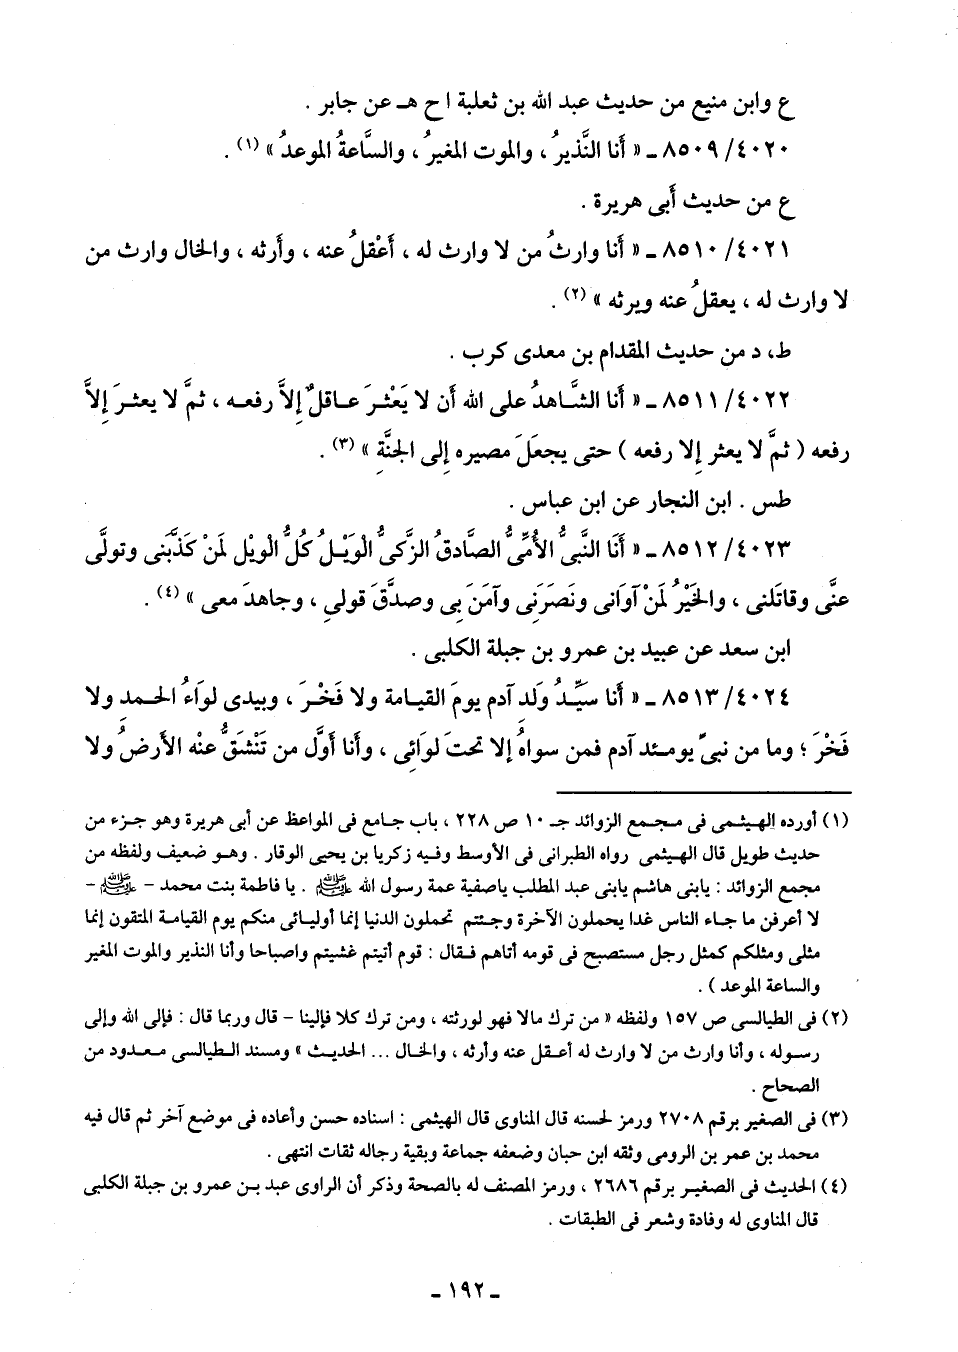 ع وابن منيع من حديث عبد الله بن ثعلبة ا ح هـ عن جابر .
٨٥٠٩/٤٠٢٠ ـ « أَنا النَّذيرُ ، والموت المغيرُ ، والسَّاعةُ الموعدُ » (١) .
ع من حديث أَبى هريرة .
٨٥١٠/٤٠٢١ ـ « أَنا وارثُ من لا وارث له ، أَعْقلُ عنه ، وأَرثه ، والخال وارث من
لا وارث له ، يعقلُ عنه ويرثه » (٢) .
ط، د من حديث المقدام بن معدى كرب .
٨٥١١/٤٠٢٢ ـ « أَنا الشَّاهدُ على الله أَن لا يَعْثرَ عاقلٌ إِلاَّ رفعه ، ثمَّ لا يعثرَ إِلاَّ
رفعه ( ثمَّ لا يعثر إِلا رفعه ) حتى يجعلَ مصيره إِلى الجنَّةِ » (٣) .
طس . ابن النجار عن ابن عباس .
٨٥١٢/٤٠٢٣ ـ « أَنَا النَّبىُّ الأُمِّىُّ الصَّادقُ الزَّكىُّ الْوَيْلُ كُلُّ الْويْل لمَنْ كَذَّبَنى وتولَّى
عنَّى وقاتَلنى ، والخَيْرُ لمَنْ آوَانى ونَصَرَنِى وآمَنَ بِى وصدَّقَ قولىِ ، وجاهدَ معى » (٤) .
ابن سعد عن عبيد بن عمرو بن جبلة الكلبى .
٨٥١٣/٤٠٢٤ ـ « أَنا سَيِّدُ وَلَد آدم يومَ القيامة ولا فَخْرَ ، وبيدى لوَاءُ الحمد ولا
فَخْرَ ؛ وما من نبىٍّ يومئذ آدم فمن سواهُ إلا تحتَ لوَائى ، وأَنا أَوَّل من تَنْشَقُّ عنْه الأَرضُ ولا
(١) أورده الهيثمى فى مجمع الزوائد جـ ١٠ ص ٢٢٨ ، باب جامع فى المواعظ عن أبى هريرة وهو جزء من
حديث طويل قال الهيثمى رواه الطبرانى فى الأوسط وفيه زكريا بن يحيى الوقار . وهو ضعيف ولفظه من
مجمع الزوائد : يابنى هاشم يابنى عبد المطلب ياصفية عمة رسول الله ﷺ . يا فاطمة بنت محمد - ﷺ -
لا أعرفن ما جاء الناس غدا يحملون الآخرة وجئتم تحملون الدنيا إنما أوليائى منكم يوم القيامة المتقون إنما
مثلى ومثلكم كمثل رجل مستصبح فى قومه أتاهم فقال : قوم أتيتم غشيتم واصباحا وأنا النذير والموت المغير
والساعة الموعد ) .
(٢) فى الطيالسى ص ١٥٧ ولفظه « من ترك مالا فهو لورثته ، ومن ترك كلا فإلينا - قال وربما قال : فإلى الله وإلى
رسوله ، وأنا وارث من لا وارث له أعقل عنه وأرثه ، والخال ... الحديث » ومسند الطيالسى معدود من
الصحاح .
(٣) فى الصغير برقم ٢٧٠٨ ورمز لحسنه قال المناوى قال الهيثمى : اسناده حسن وأعاده فى موضع آخر ثم قال فيه
محمد بن عمر بن الرومى وثقه ابن حبان وضعفه جماعة وبقية رجاله ثقات انتهى .
(٤) الحديث فى الصغير برقم ٢٦٨٦ ، ورمز المصنف له بالصحة وذكر أن الراوى عبد بن عمرو بن جبلة الكلبى
قال المناوى له وفادة وشعر فى الطبقات .
ـ ١٩٢ ـ